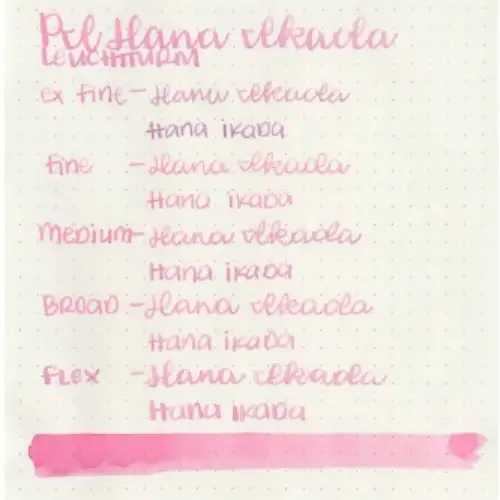 Pil Hana Ikada
LEUCHTTURM
EX FINE - Hana Ikada
Hana IKADA
FINE - Hana Ikada
Hana IKADA
MEDIUM - Hana Ikada
Hana IKADA
BROAD - Hana Ikada
Hana IKADA
FLEX - Hana Ikada
Hana IKADA